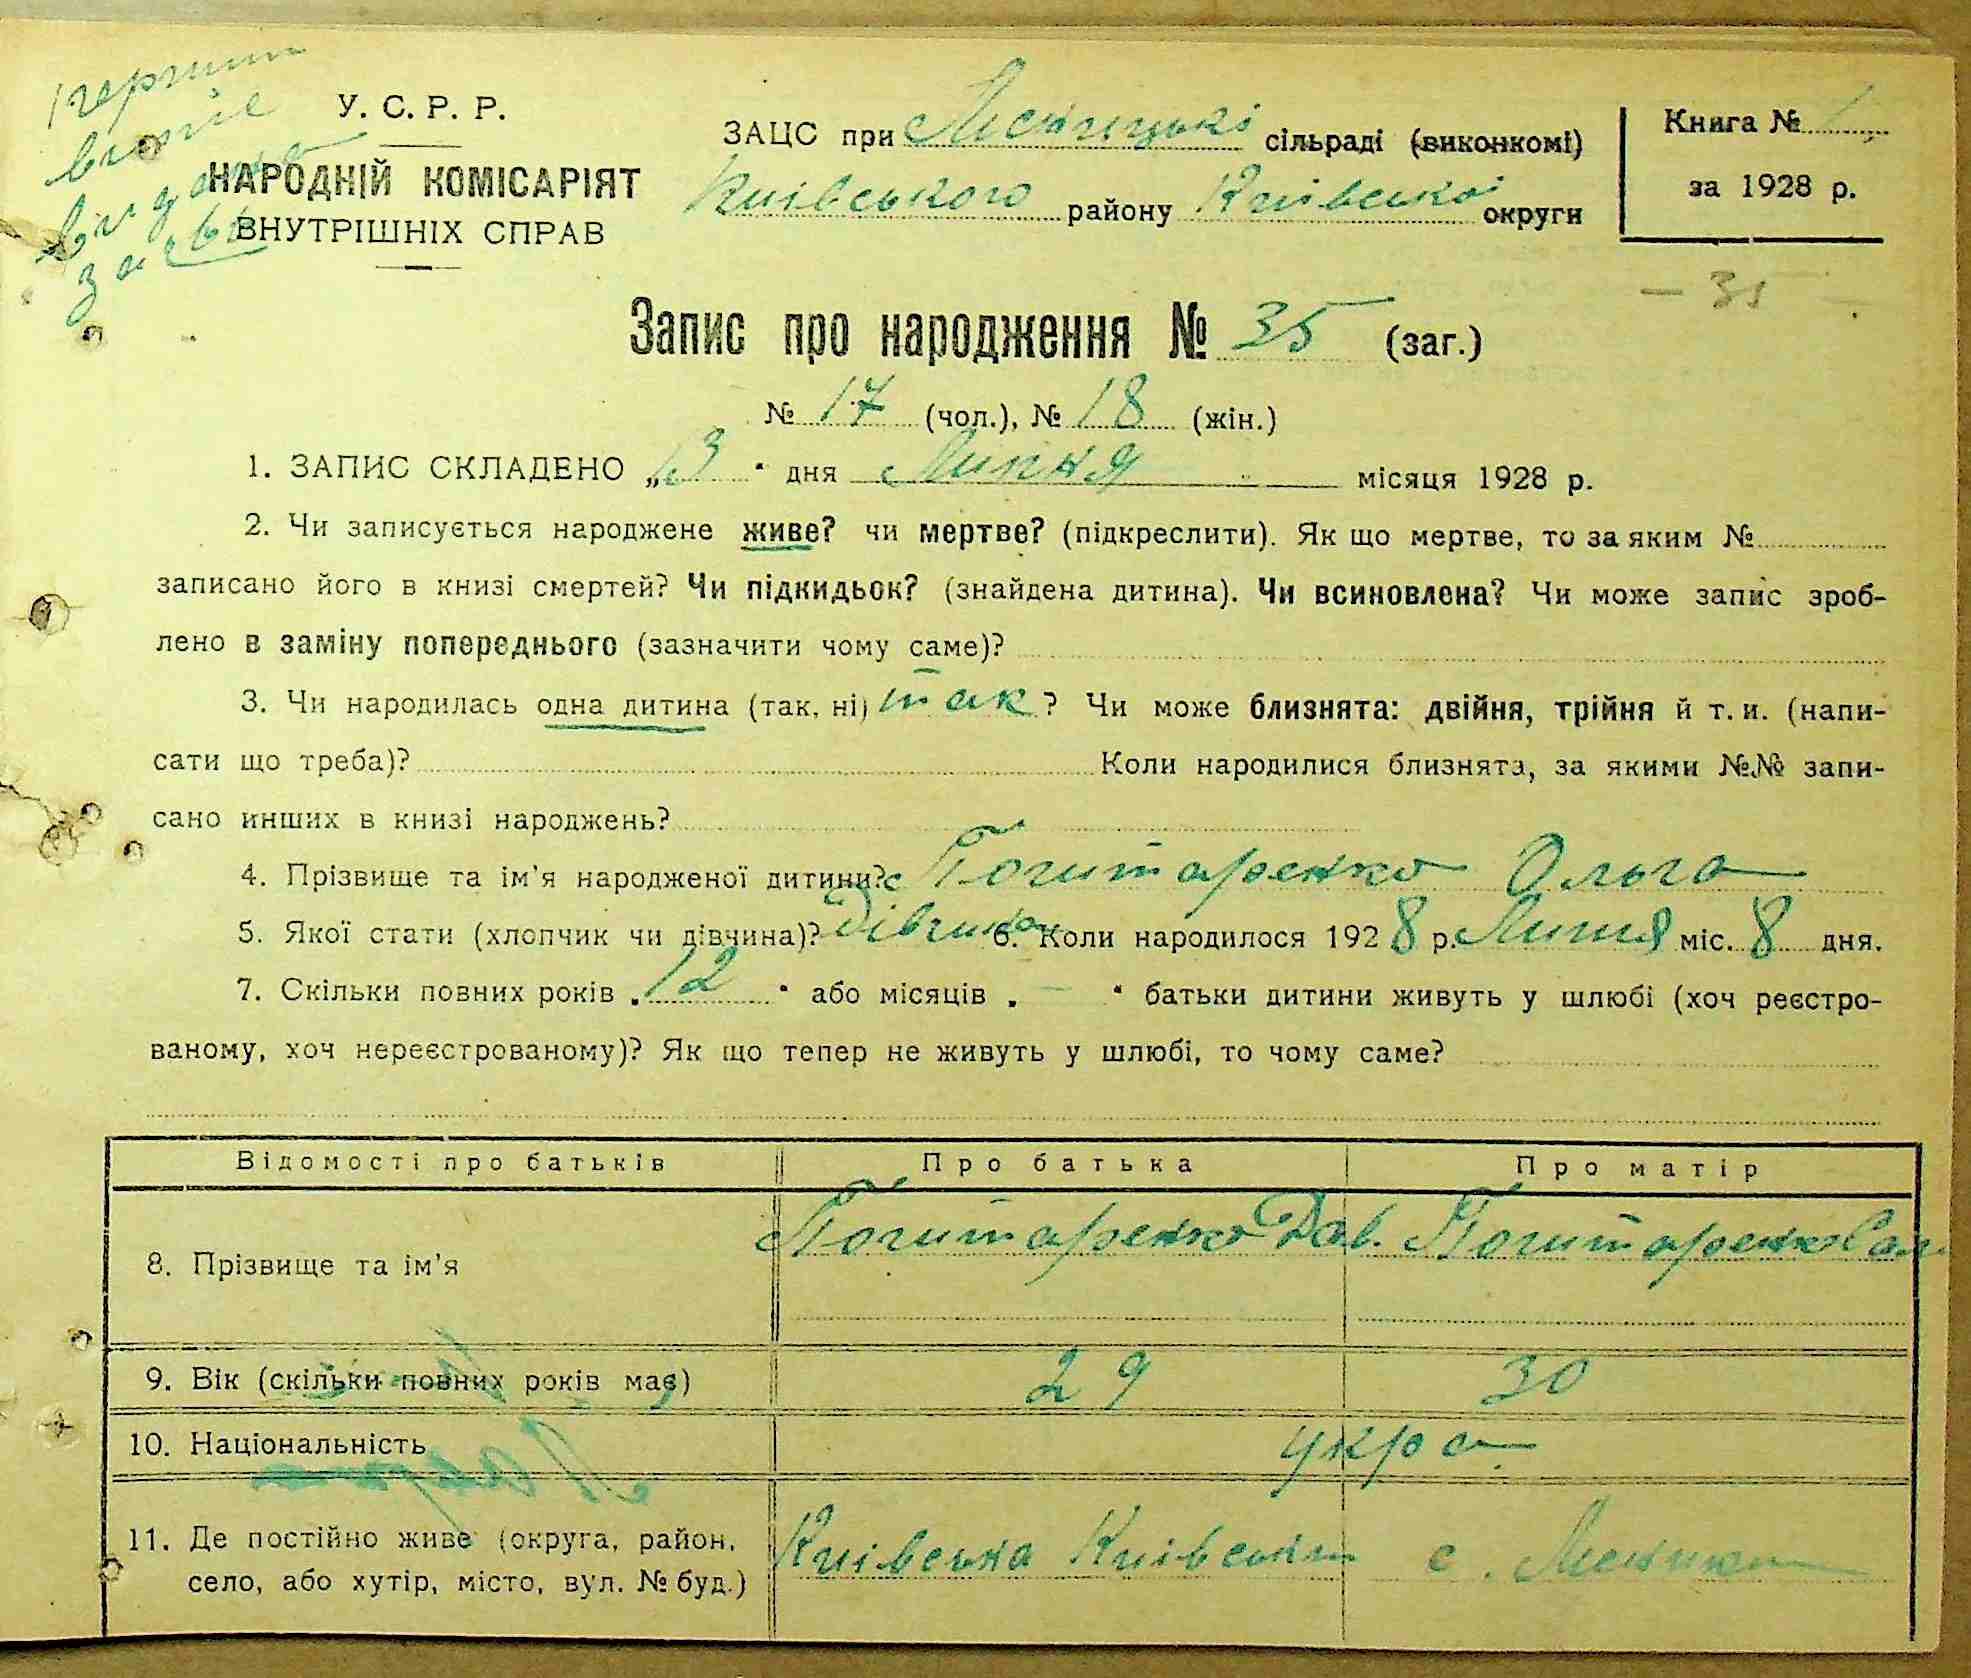 У. С. Р. Р.
НАРОДНІЙ КОМІСАРІЯТ
ВНУТРІШНІХ СПРАВ
ЗАЦС при сільраді (виконкомі)
Київського району Київської округи
Книга №
за 1928 р.
– 35
Запис про народження № 35 (заг.)
№ 17 (чол.), № 18 (жін.)
1. ЗАПИС СКЛАДЕНО „13 “ дня Липня місяця 1928 р.
2. Чи записується народжене живе? чи мертве? (підкреслити). Як що мертве, то за яким №
записано його в книзі смертей? Чи підкидьок? (знайдена дитина). Чи всиновлена? Чи може запис зроб-
лено в заміну попереднього (зазначити чому саме)?
3. Чи народилась одна дитина (так, ні) так ? Чи може близнята: двійня, трійня й т. и. (напи-
сати що треба)? Коли народилися близнята, за якими №№ запи-
сано инших в книзі народжень?
4. Прізвище та ім'я народженої дитини? Ольга
5. Якої стати (хлопчик чи дівчина)? дівчина 6. Коли народилося 1928 р. Липня міс. 8 дня.
7. Скільки повних років „ 12 “ або місяців „ — “ батьки дитини живуть у шлюбі (хоч реєстро-
ваному, хоч нереєстрованому)? Як що тепер не живуть у шлюбі, то чому саме?
Відомості про батьків Про батька Про матір
8. Прізвище та ім'я Дав.
9. Вік (скільки повних років має) 29 30
10. Національність укра
11. Де постійно живе (округа, район, село, або хутір, місто, вул. № буд.) Київська Київськ с.